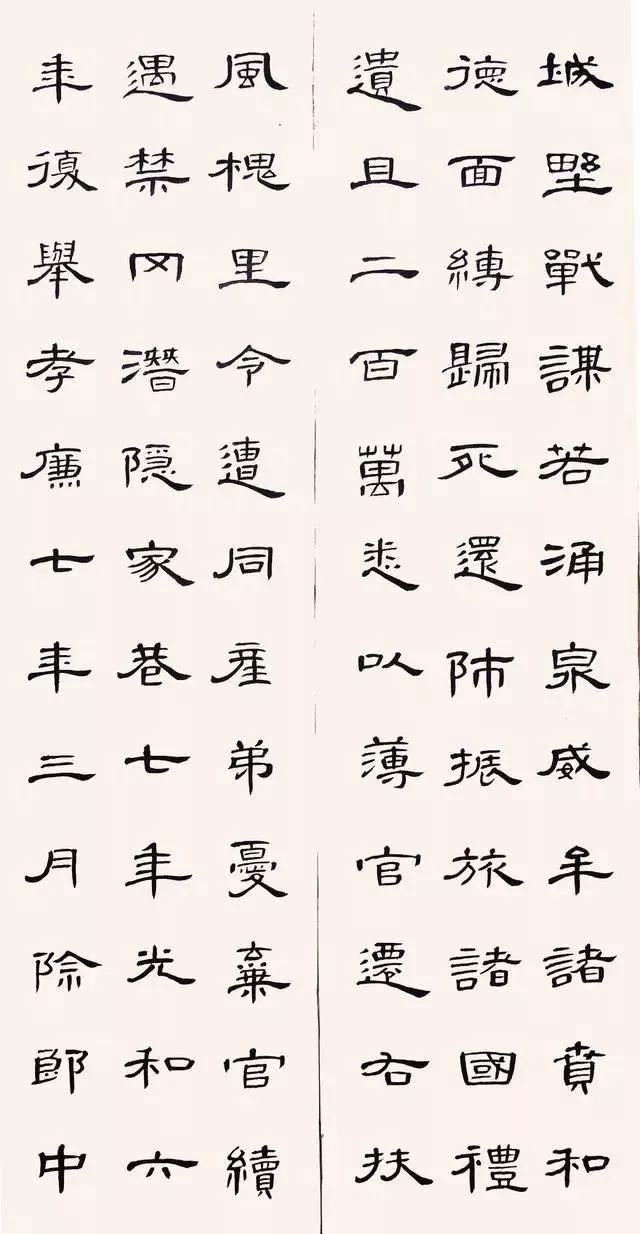 城野戰謀若涌泉威牟諸賁和
德面縛歸死還師振旅諸國禮
遺且二百萬悉以薄官遷右扶
風槐里令遭同産弟憂棄官續
遇禁冈潛隱家巷七年光和六
年復舉孝廉七年三月除郎中